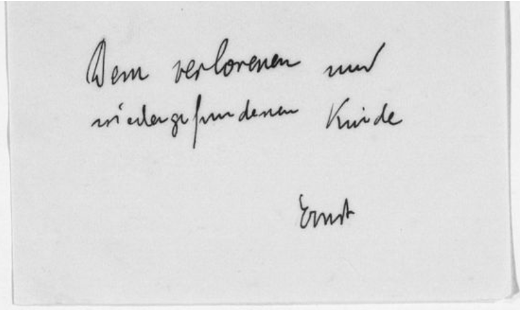 Dem verlorenen und
wiedergefundenen Kinde
Ernst